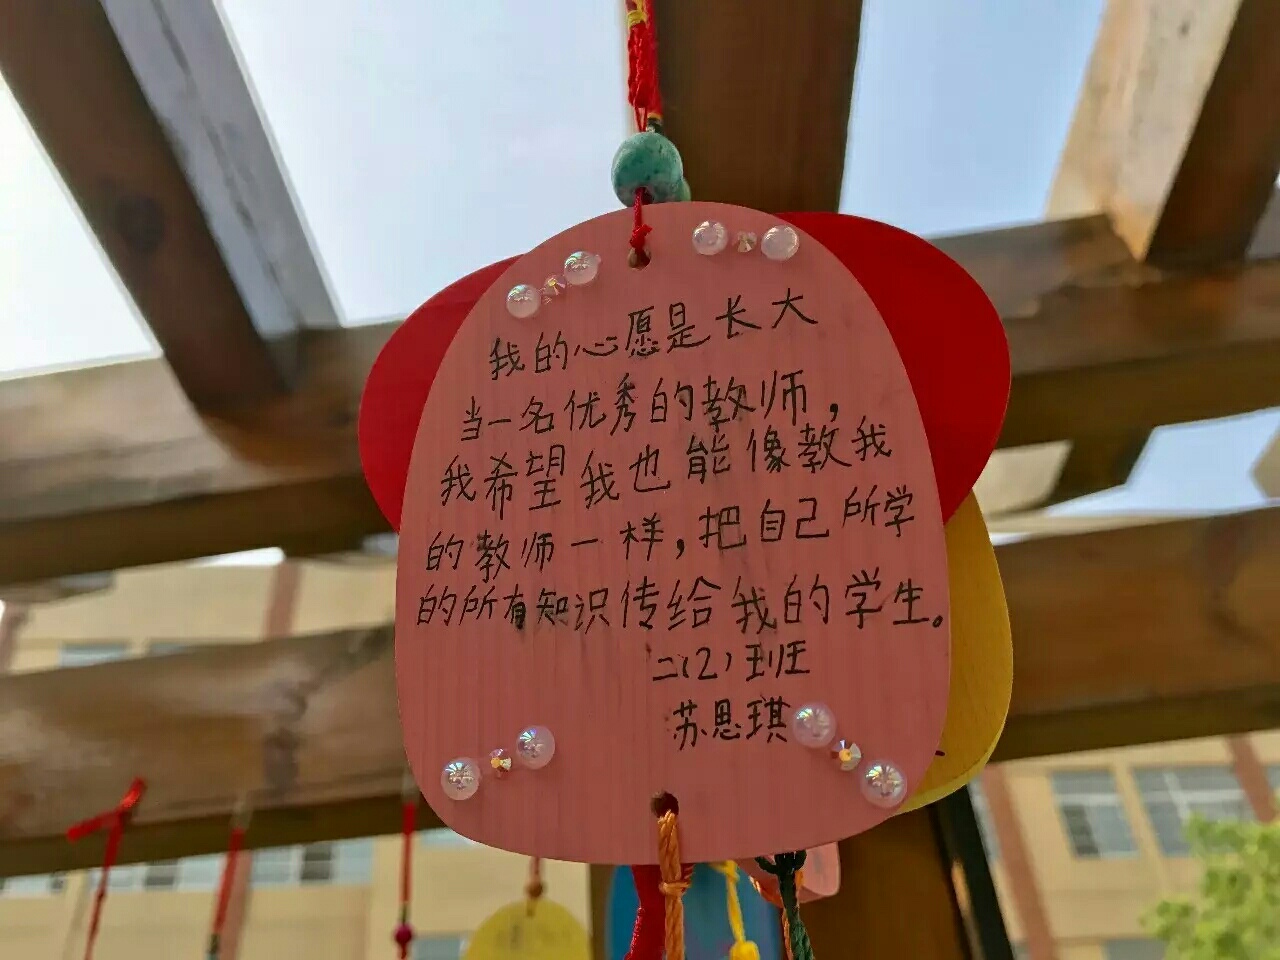 我的心愿是长大
当一名优秀的教师，
我希望我也能像教我
的教师一样，把自己所学
的所有知识传给我的学生。
二(2)班
苏思琪